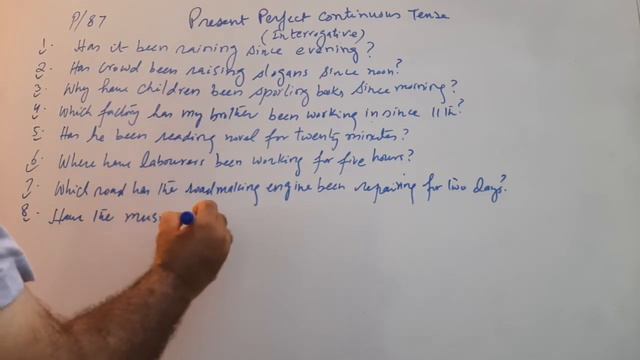 P/87 Present Perfect Continuous Tense
(Interrogative)
1. Has it been raining since evening?
2. Has crowd been raising slogans since noon?
3. Why have children been spoiling books since morning?
4. Which factory has my brother been working in since 11th?
5. Has he been reading novel for twenty minutes?
6. Where have labourers been working for five hours?
7. Which road has the roadmaking engine been repairing for two days?
8. Have the mus